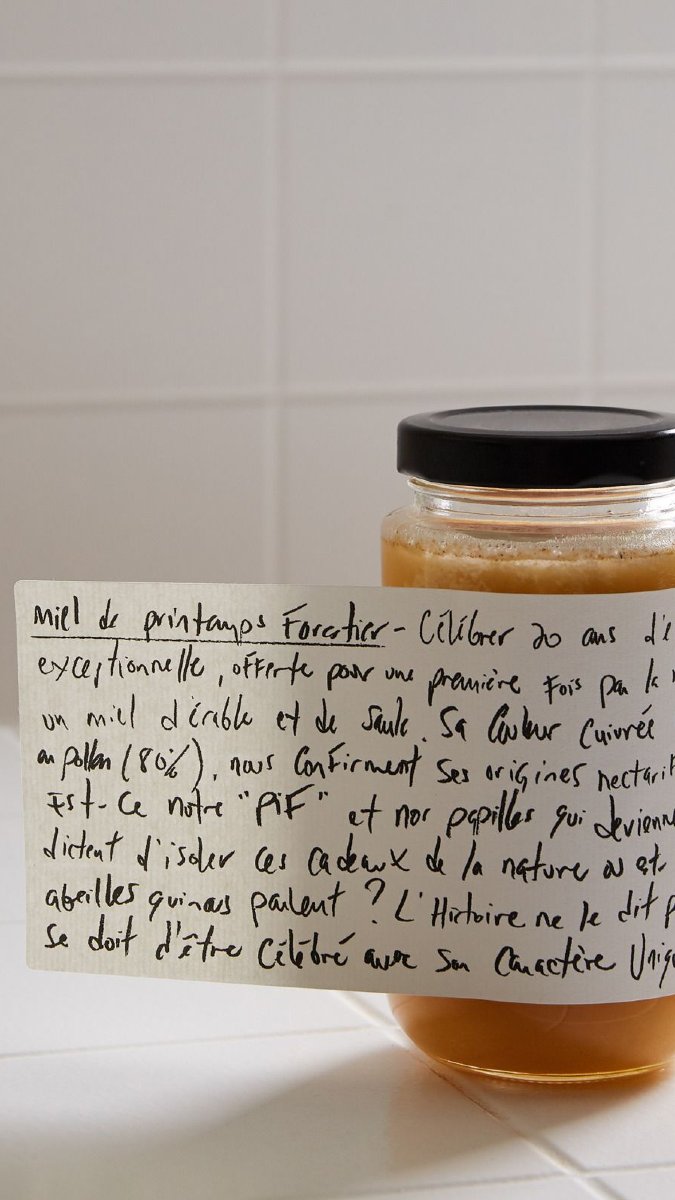 Miel de printemps Forestier - Célébrer 20 ans d'e
exceptionnelle, offerte pour une première fois par la
un miel d'érable et de saule. Sa couleur cuivrée
en pollen (80%), nous confirment ses origines nectarif
Est-ce notre "PiF" et nos papilles qui devienne
dictent d'isoler ces cadeaux de la nature ou est-
abeilles qui nous parlent ? L'Histoire ne le dit p
se doit d'être célébré avec son caractère Uniq